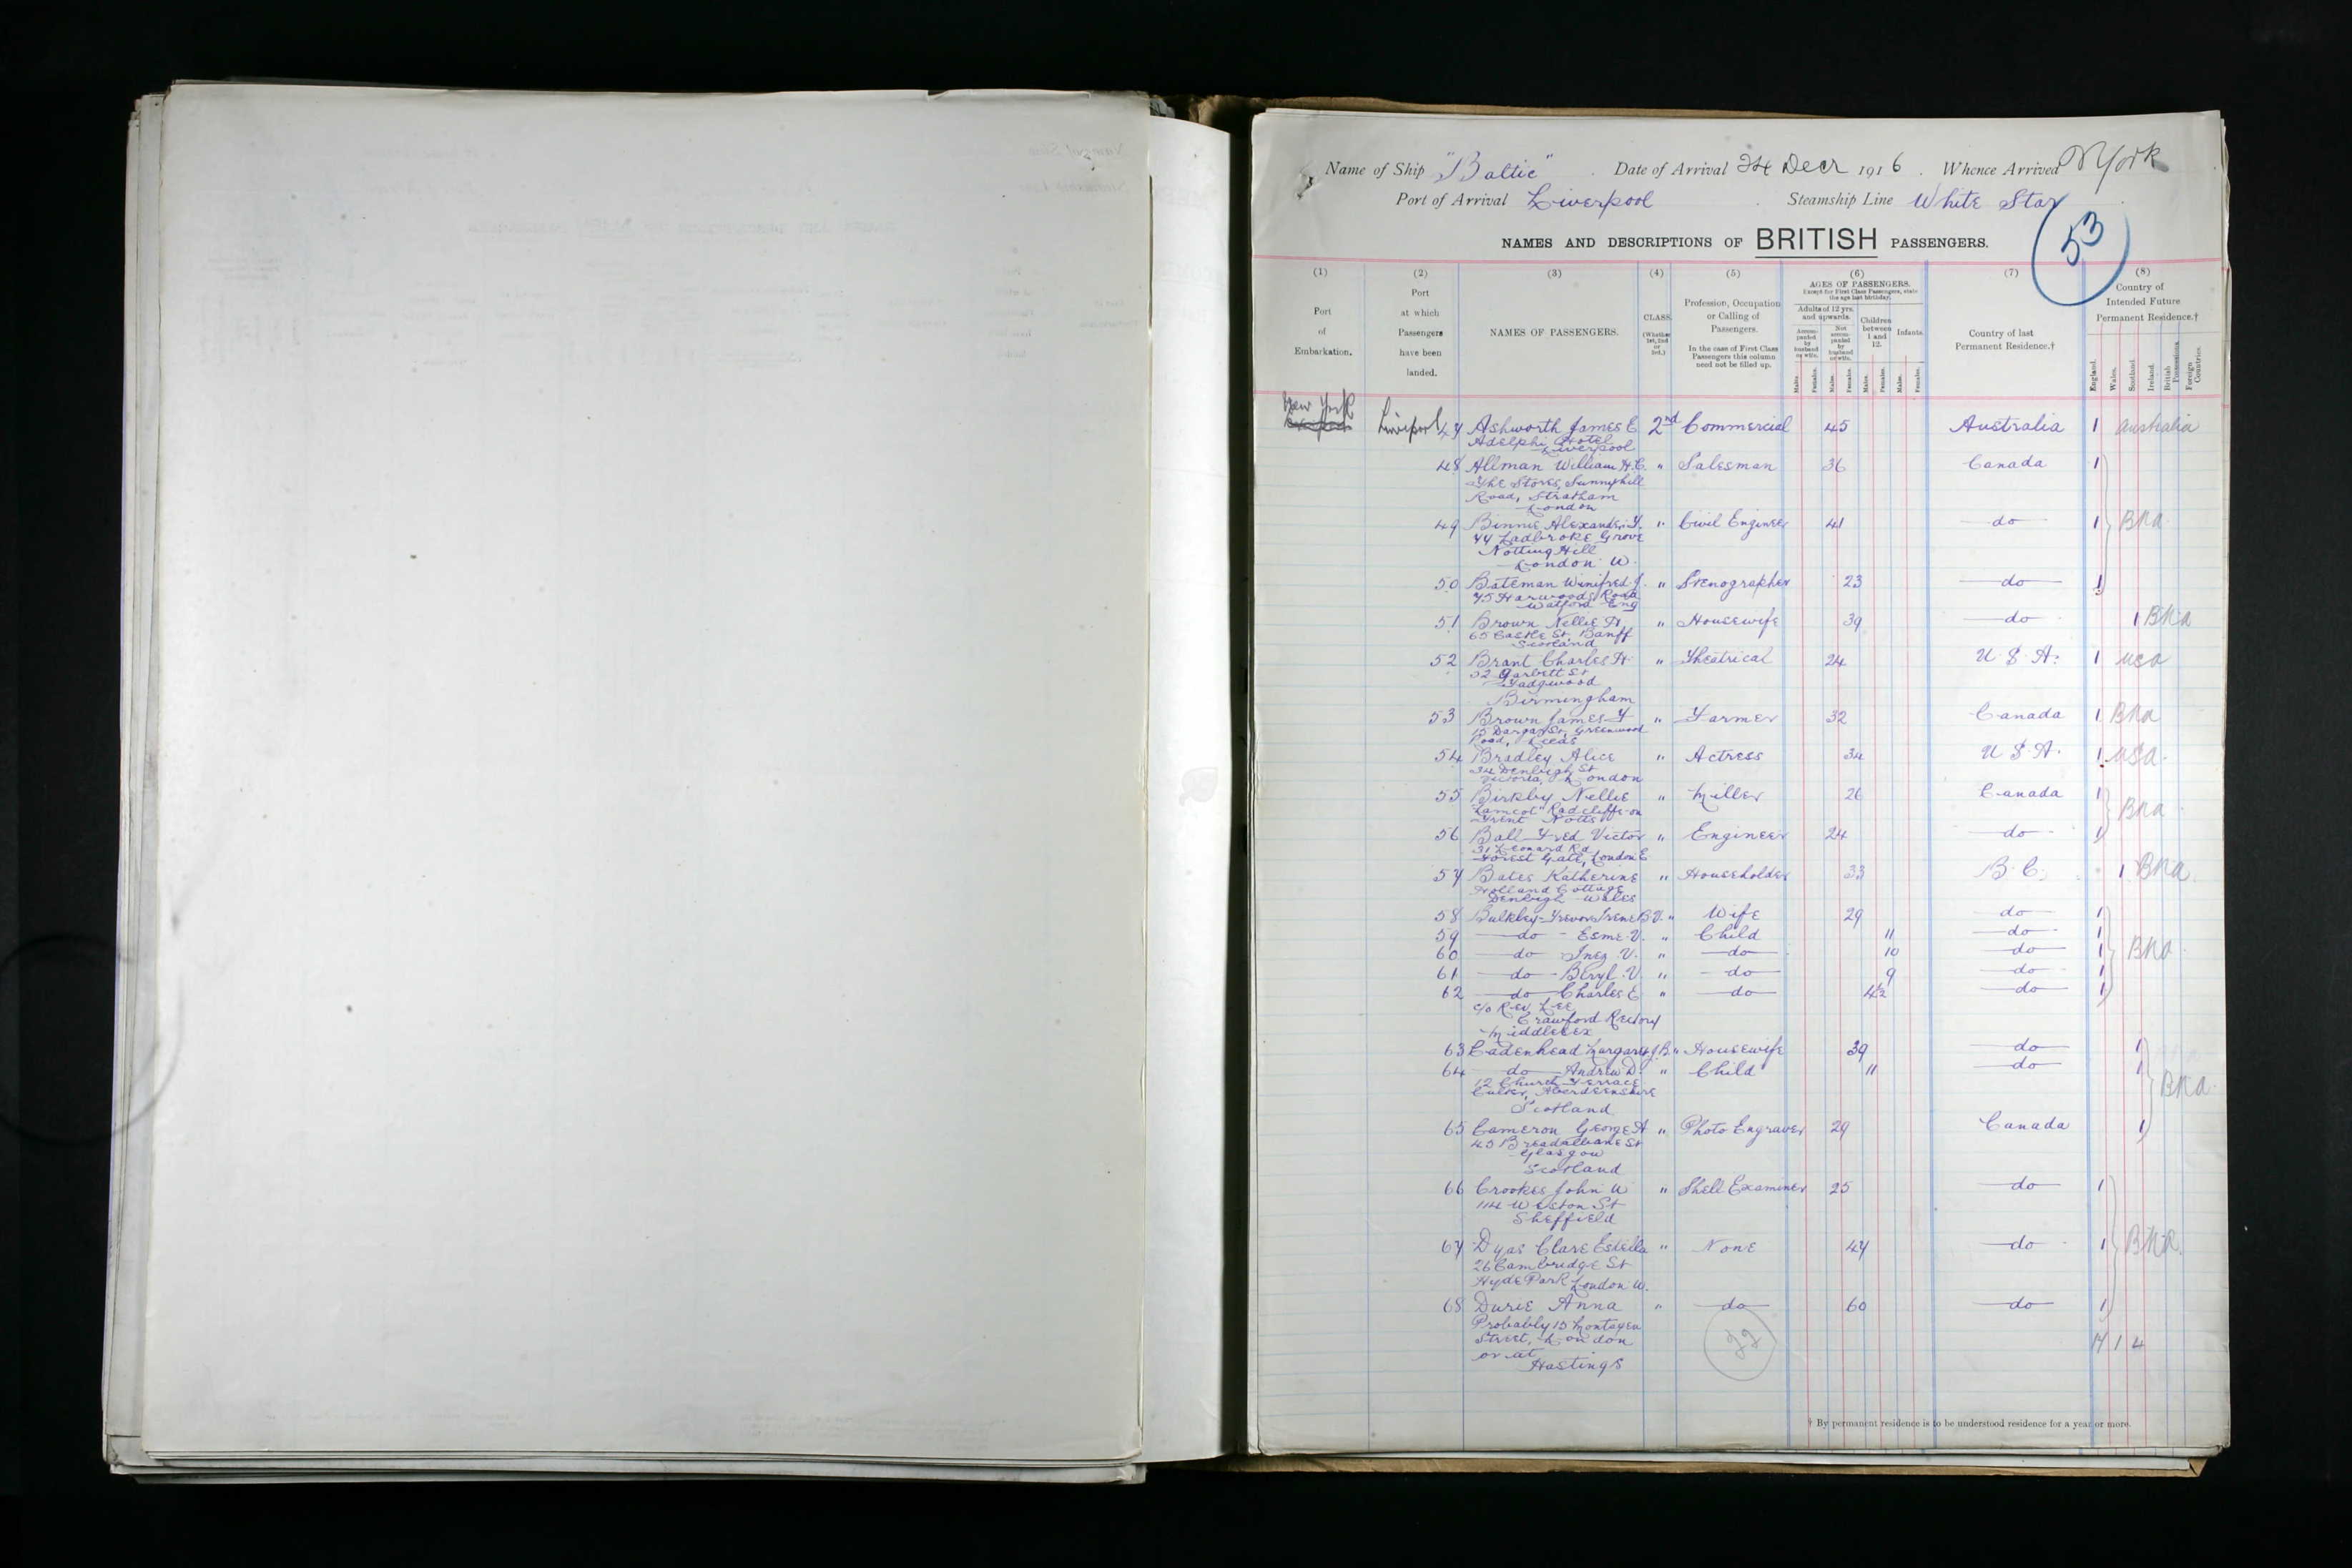 Name of Ship "Baltic" Date of Arrival 24 Decr 1916. Whence Arrived N York
Port of Arrival Liverpool Steamship Line White Star
53
NAMES AND DESCRIPTIONS OF BRITISH PASSENGERS.
(1) (2) (3) (4) (5) (6) (7) (8)
Port of Embarkation.
Port at which Passengers have been landed.
NAMES OF PASSENGERS.
CLASS. (Whether 1st, 2nd or 3rd.)
Profession, Occupation or Calling of Passengers.
In the case of First Class Passengers this column need not be filled up.
AGES OF PASSENGERS.
Except for First Class Passengers, state the age last birthday.
Adults of 12 yrs. and upwards.
Accompanied by husband or wife.
Not accompanied by husband or wife.
Children between 1 and 12.
Infants.
Males. Females. Males. Females. Males. Females. Males. Females.
Country of last Permanent Residence.†
Country of Intended Future Permanent Residence.†
England. Wales. Scotland. Ireland. British Possessions. Foreign Countries.
New York Liverpool 47 Ashworth James E 2nd Commercial 45 Australia 1 Australia
Adelphi Hotel
Liverpool
48 Allman William H.C. " Salesman 36 Canada 1
The Stores, Sunnyhill
Road, Stratham
London
49 Binnie Alexander " Civil Engineer 41 do 1 BNA
77 Ladbroke Grove
Notting Hill
London W.
50 Bateman Winifred J. " Stenographer 23 do 1
75 Harwoods Road
Watford Eng
51 Brown Nellie H. " Housewife 39 do 1 BNA
65 Castle St, Banff
Scotland
52 Brant Charles H. " Theatrical 24 U.S.A. 1 USA
52 Garbett St
Ladywood
Birmingham
53 Brown James " Farmer 32 Canada 1 BNA
Greenwood
Road, Leeds
54 Bradley Alice " Actress 34 U.S.A. 1 USA
34 Denbigh St
Victoria, London
55 Birkby Nellie " Miller 26 Canada 1 BNA
Radcliffe-on
Trent Notts
56 Ball Fred Victor " Engineer 24 do 1
31 Leonard Rd
Forest Gate, London E
57 Bates Katherine " Householder 33 B.C. 1 BNA
Holland Cottage
Denbigh Wales
58 Bulkley-Trevor Irene B V. " Wife 29 do 1
59 do Esme V. " Child 11 do 1
60 do Inez V. " do 10 do 1 BNA
61 do Beryl V. " do 9 do 1
62 do Charles E " do 4½ do 1
c/o Rev. Lee
Crawford Rectory
Middlesex
63 Cadenhead Margaret J.B. " Housewife 39 do 1
64 do Andrew D. " Child 11 do 1 BNA
12 Church Terrace
Culter, Aberdeenshire
Scotland
65 Cameron George A " Photo Engraver 29 Canada 1
45 Breadalbane St
Glasgow
Scotland
66 Crookes John W " Shell Examiner 25 do 1
114 Weston St
Sheffield
67 Dyas Clare Estella " None 47 do 1 BNA
26 Cambridge St
Hyde Park London W.
68 Durie Anna " do 60 do 1
Probably 15 Montagu
Street, London
or at
Hastings
17 1 4
† By permanent residence is to be understood residence for a year or more.